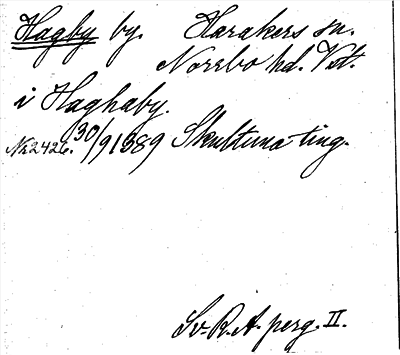 Hagby by. Harakers sn.
Norrbo hd. Vstm.
i Haghaby.
Nr 2426. 30/9 1389 Skultuna ting.
Sv. R. A. perg. II.